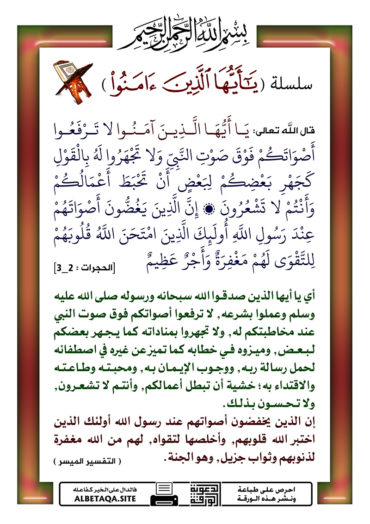 بسم الله الرحمن الرحيم
سلسلة ( يَٰٓأَيُّهَا ٱلَّذِينَ ءَامَنُوا۟ )
قال الله تعالى: يَا أَيُّهَا الَّذِينَ آمَنُوا لَا تَرْفَعُوا
أَصْوَاتَكُمْ فَوْقَ صَوْتِ النَّبِيِّ وَلَا تَجْهَرُوا لَهُ بِالْقَوْلِ
كَجَهْرِ بَعْضِكُمْ لِبَعْضٍ أَنْ تَحْبَطَ أَعْمَالُكُمْ
وَأَنْتُمْ لَا تَشْعُرُونَ ۞ إِنَّ الَّذِينَ يَغُضُّونَ أَصْوَاتَهُمْ
عِنْدَ رَسُولِ اللَّهِ أُولَئِكَ الَّذِينَ امْتَحَنَ اللَّهُ قُلُوبَهُمْ
لِلتَّقْوَى لَهُمْ مَغْفِرَةٌ وَأَجْرٌ عَظِيمٌ [الحجرات : 2_3]
أي يا أيها الذين صدقوا الله سبحانه ورسوله صلى الله عليه
وسلم وعملوا بشرعه , لا ترفعوا أصواتكم فوق صوت النبي
عند مخاطبتكم له , ولا تجهروا بمناداته كما يجهر بعضكم
لبعض , وميزوه في خطابه كما تميز عن غيره في اصطفائه
لحمل رسالة ربه , ووجوب الإيمان به , ومحبته وطاعته
والاقتداء به ؛ خشية أن تبطل أعمالكم , وأنتم لا تشعرون ,
ولا تحسون بذلك .
إن الذين يخفضون أصواتهم عند رسول الله أولئك الذين
اختبر الله قلوبهم , وأخلصها لتقواه , لهم من الله مغفرة
لذنوبهم وثواب جزيل , وهو الجنة . ( التفسير الميسر )
احرص على طباعة
ونشر هذه الورقة
الدعوية
الورقة
فالدال على الخير كفاعله
ALBETAQA.SITE